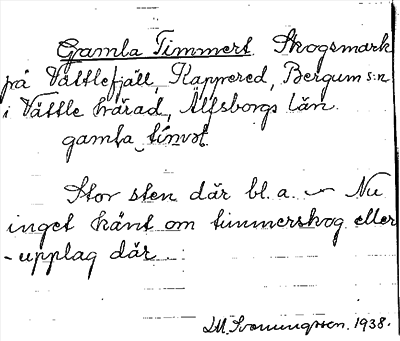 Gamla Timmert. Skogsmark
på Vättlefjäll, Kappered, Bergum s:n
i Vättle härad, Älfsborgs län.
gamla
Stor sten där bl. a. — Nu
inget känt om timmerskog eller
-upplag där.
1938.